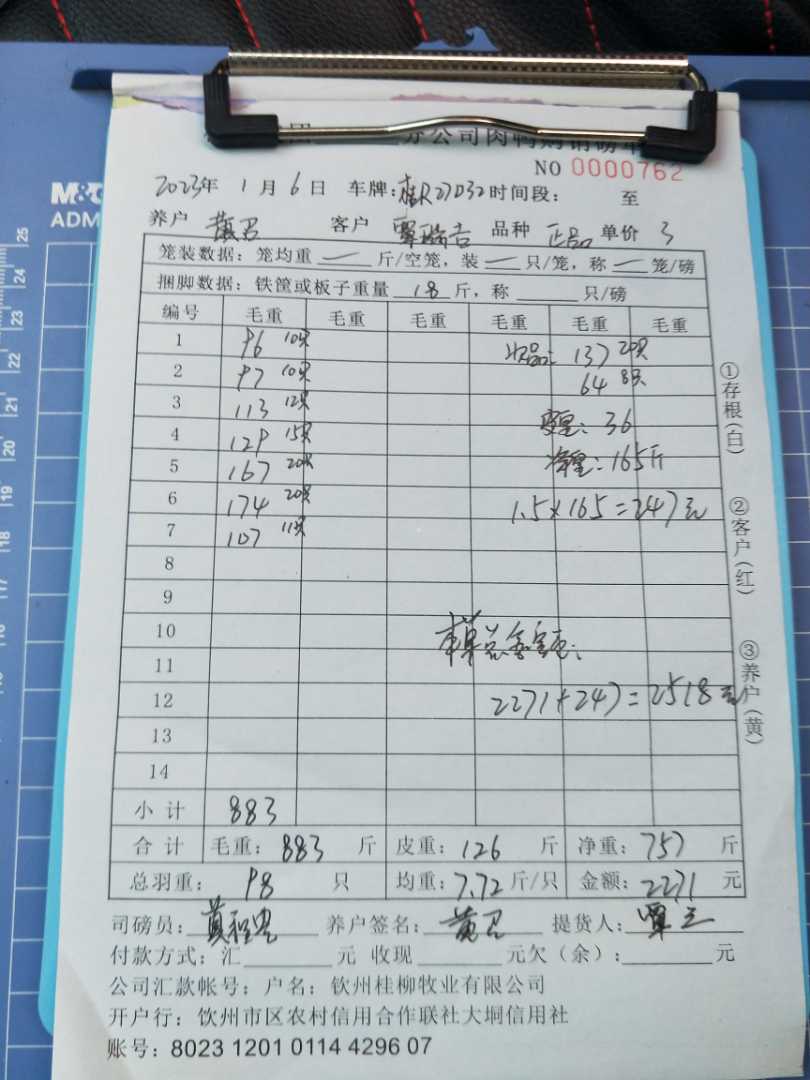 分公司肉鸭购销磅单
NO 0000762
2023年 1月 6日 车牌:桂R27D32 时间段: 至
养户 黄忍 客户 覃瑞吉 品种 正品 单价 3
笼装数据: 笼均重 — 斤/空笼, 装 — 只/笼, 称 — 笼/磅
捆脚数据: 铁筐或板子重量 18 斤, 称 只/磅
编号 毛重 毛重 毛重 毛重 毛重 毛重
1 96 10只 次品: 137 20只
2 97 10只 64 8只
3 113 12只
4 129 15只 皮重: 36
5 167 20只 净重: 165斤
6 174 20只 1.5×165=247元
7 107 11只
8
9
10
本单总金额:
11
12 2271+247=2518元
13
14
小计 883
合计 毛重: 883 斤 皮重: 126 斤 净重: 757 斤
总羽重: 98 只 均重: 7.72 斤/只 金额: 2271 元
司磅员: 养户签名: 黄忍 提货人:
付款方式: 汇 元 收现 元欠(余): 元
公司汇款帐号: 户名: 钦州桂柳牧业有限公司
开户行: 钦州市区农村信用合作联社大垌信用社
账号: 8023 1201 0114 4296 07
①存根(白)
②客户(红)
③养户(黄)
M&G
ADM
25
24
23
22
21
20
19
18
17